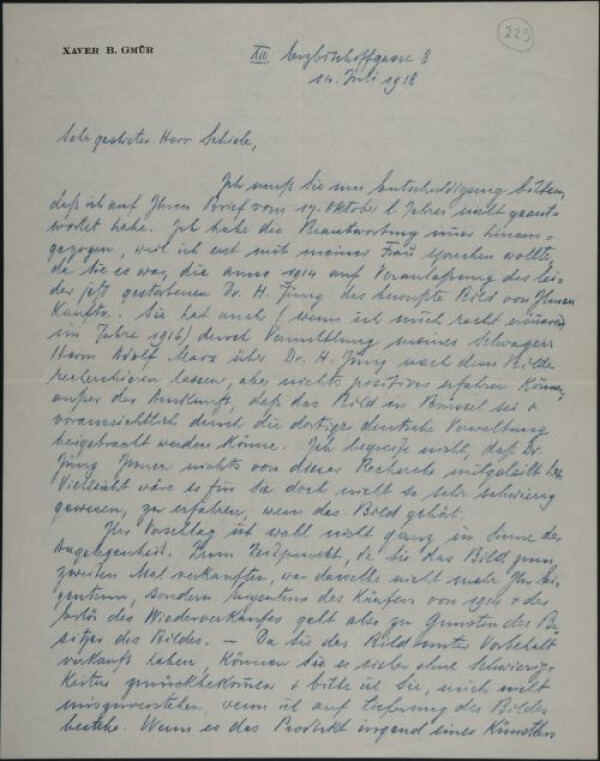 229
XAVER B. GMÜR
XIII Erzbischoffgasse 8
14. Juli 1918
Sehr geehrter Herr Schiele,
Ich muß Sie um Entschuldigung bitten,
daß ich auf Ihren Brief vom 17. Oktober l. Jahres nicht geant-
wortet habe. Ich habe die Beantwortung immer hinaus-
gezogen, weil ich erst mit meiner Frau sprechen wollte,
da sie es war, die anno 1914 auf Veranlassung des lei-
der jetzt gestorbenen Dr. H. Jung das bewußte Bild von Ihnen
kaufte. Sie hat auch (wenn ich mich recht erinnere
im Jahre 1916) durch Vermittlung meines Schwagers
Herrn Adolf Marx über Dr. H. Jung nach dem Bilde
recherchieren lassen, aber nichts positives erfahren können,
außer der Auskunft, daß das Bild in Brüssel sei +
voraussichtlich durch die dortige deutsche Verwaltung
beigebracht werden könne. Ich begreife nicht, daß Dr.
Jung Ihnen nichts von dieser Recherche mitgeteilt hat.
Vielleicht wäre es für Sie doch nicht so sehr schwierig
gewesen, zu erfahren, wem das Bild gehört.
Ihr Vorschlag ist wohl nicht ganz im Sinne der
Angelegenheit. Zum Zeitpunkt, da Sie das Bild zum
zweiten Mal verkauften, war dasselbe nicht mehr Ihr Ei-
gentum, sondern Eigentum des Käufers von 1914 + der
Erlös des Wiederverkaufes geht also zu Gunsten des Be-
sitzers des Bildes. — Da Sie das Bild unter Vorbehalt
verkauft haben, können Sie es sicher ohne Schwierig-
keiten zurückbekommen + bitte ich Sie, mich nicht
misszuverstehen, wenn ich auf Lieferung des Bildes
bestehe. Wenn es das Produkt irgend eines Künstlers